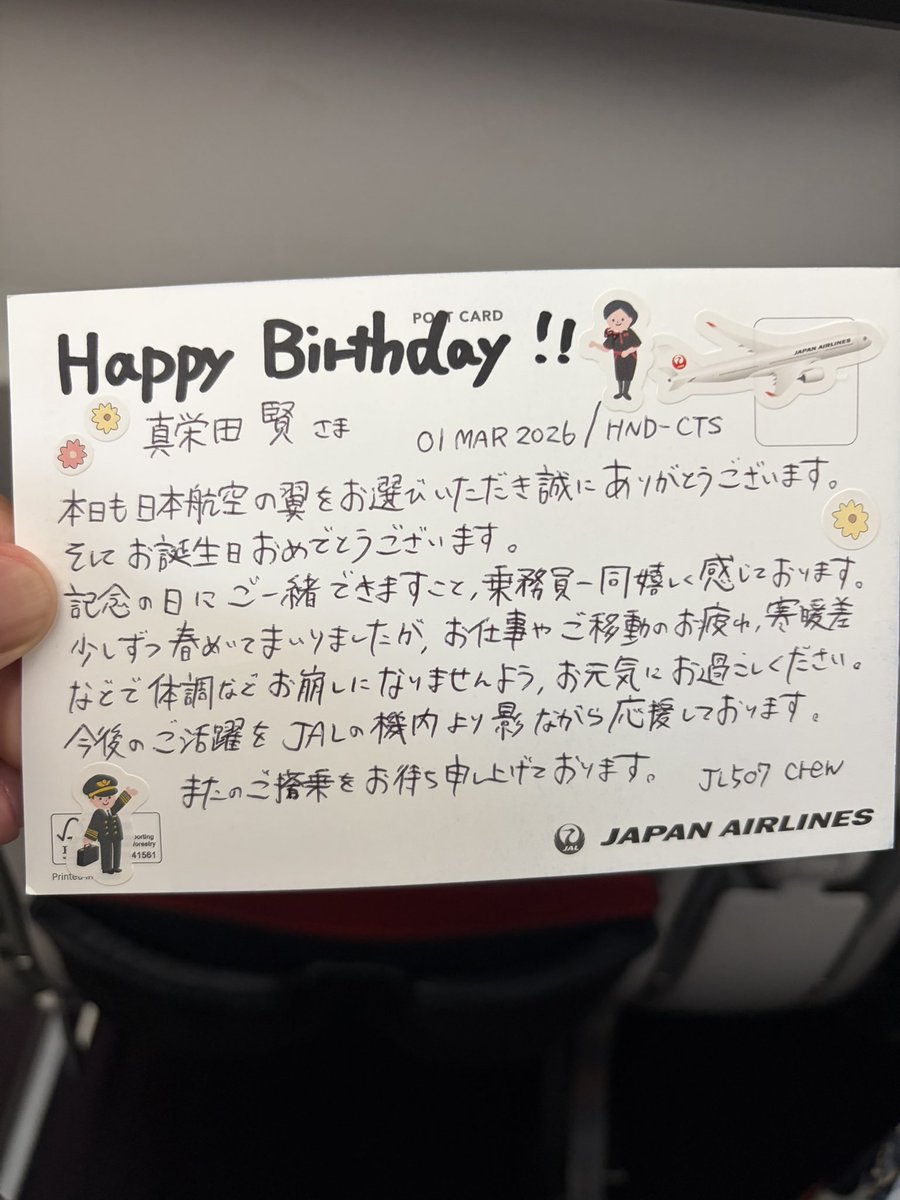 POST CARD
Happy Birthday !!
JAPAN AIRLINES
真栄田 賢 さま
01 MAR 2026 / HND-CTS
本日も日本航空の翼をお選びいただき誠にありがとうございます。
そしてお誕生日おめでとうございます。
記念の日にご一緒できますこと,乗務員一同嬉しく感じております。
少しずつ春めいてまいりましたが,お仕事やご移動のお疲れ,寒暖差
などで体調などお崩しになりませんよう,お元気にお過ごしください。
今後のご活躍をJALの機内より影ながら応援しております。
またのご搭乗をお待ち申し上げております。 JL507 crew
JAL JAPAN AIRLINES
41561
Printed in